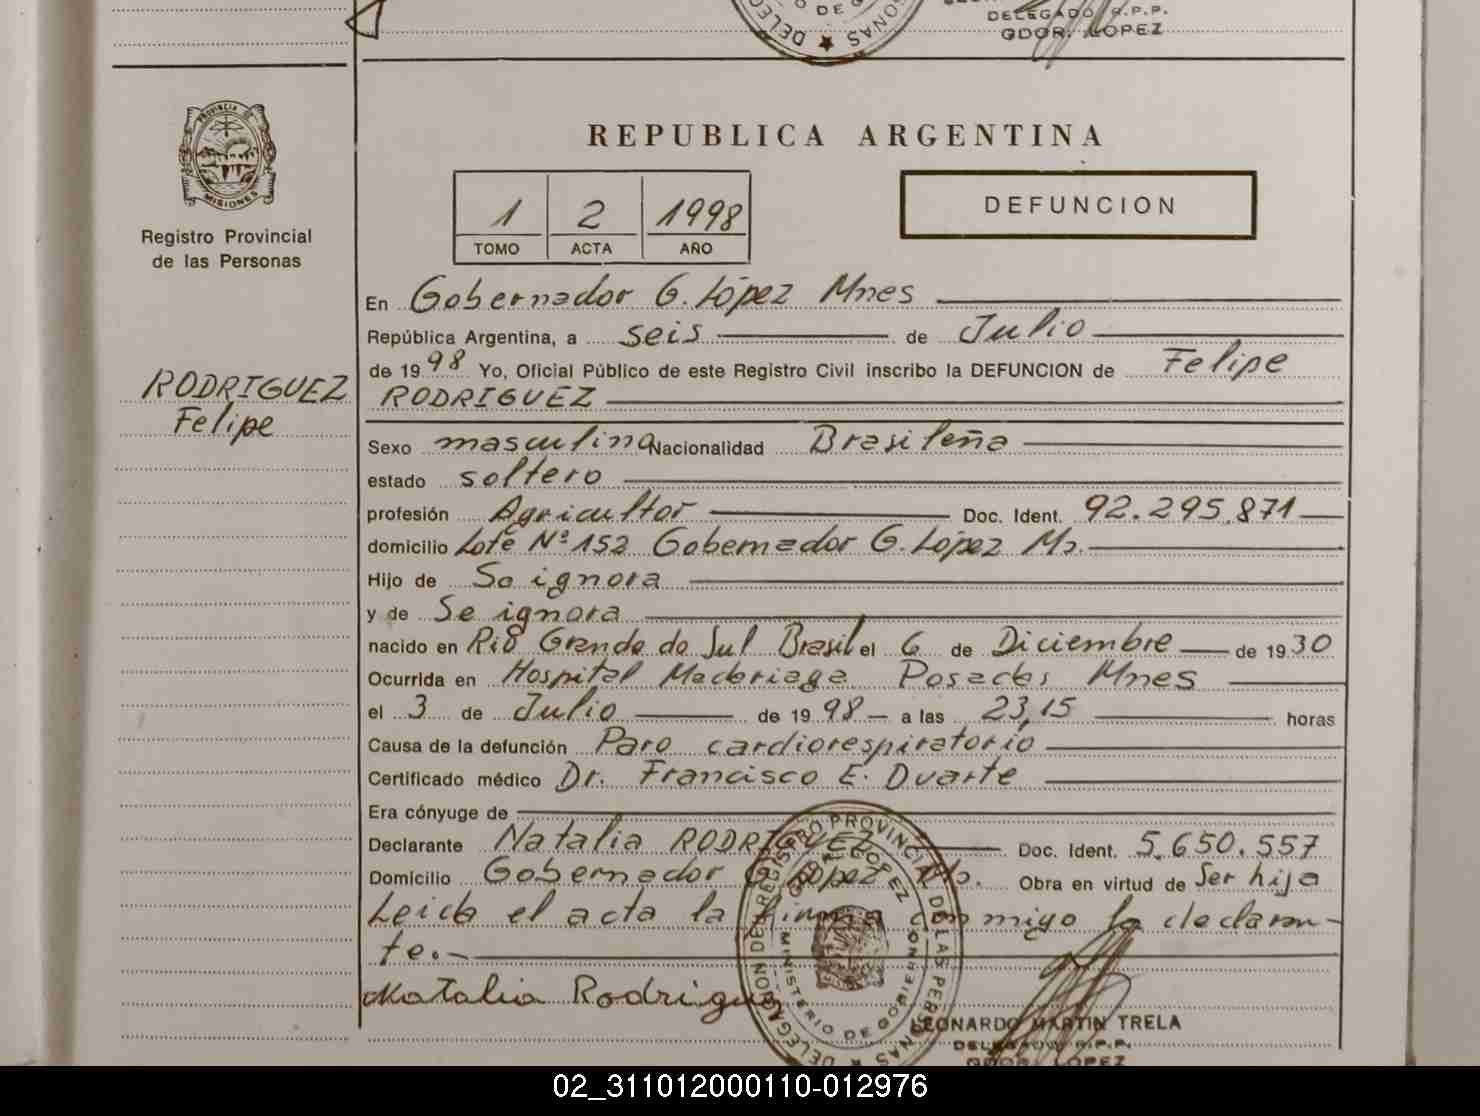 DELEGADO R.P.P.
GDOR. LOPEZ
PROVINCIA DE
MISIONES
Registro Provincial
de las Personas
RODRIGUEZ
Felipe
REPUBLICA ARGENTINA
1 2 1998
TOMO ACTA AÑO
DEFUNCION
En Gobernador G. López Mnes
República Argentina, a seis de Julio
de 1998 Yo, Oficial Público de este Registro Civil inscribo la DEFUNCION de Felipe
RODRIGUEZ
Sexo masculino Nacionalidad Brasileña
estado soltero
profesión Agricultor Doc. Ident. 92.295.871
domicilio Lote Nº 152 Gobernador G. López Ms.
Hijo de Se ignora
y de Se ignora
nacido en Rio Grande do Sul Brasil el 6 de Diciembre de 1930
Ocurrida en Hospital Madariaga Posadas Mnes
el 3 de Julio de 1998 a las 23,15 horas
Causa de la defunción Paro cardiorespiratorio
Certificado médico Dr. Francisco E. Duarte
Era cónyuge de
Declarante Natalia RODRIGUEZ Doc. Ident. 5.650.557
Domicilio Gobernador G. López Ms. Obra en virtud de Ser hija
Leida el acta la firma conmigo la declaran-
te.-
Natalia Rodriguez
DELEGACION DEL REGISTRO PROVINCIAL DE LAS PERSONAS
GDOR. LOPEZ
MINISTERIO DE GOBIERNO
LEONARDO MARTIN TRELA
DELEGADO R.P.P.
GDOR. LOPEZ
02_311012000110-012976